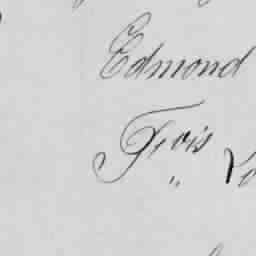 Edmond
Frois
"